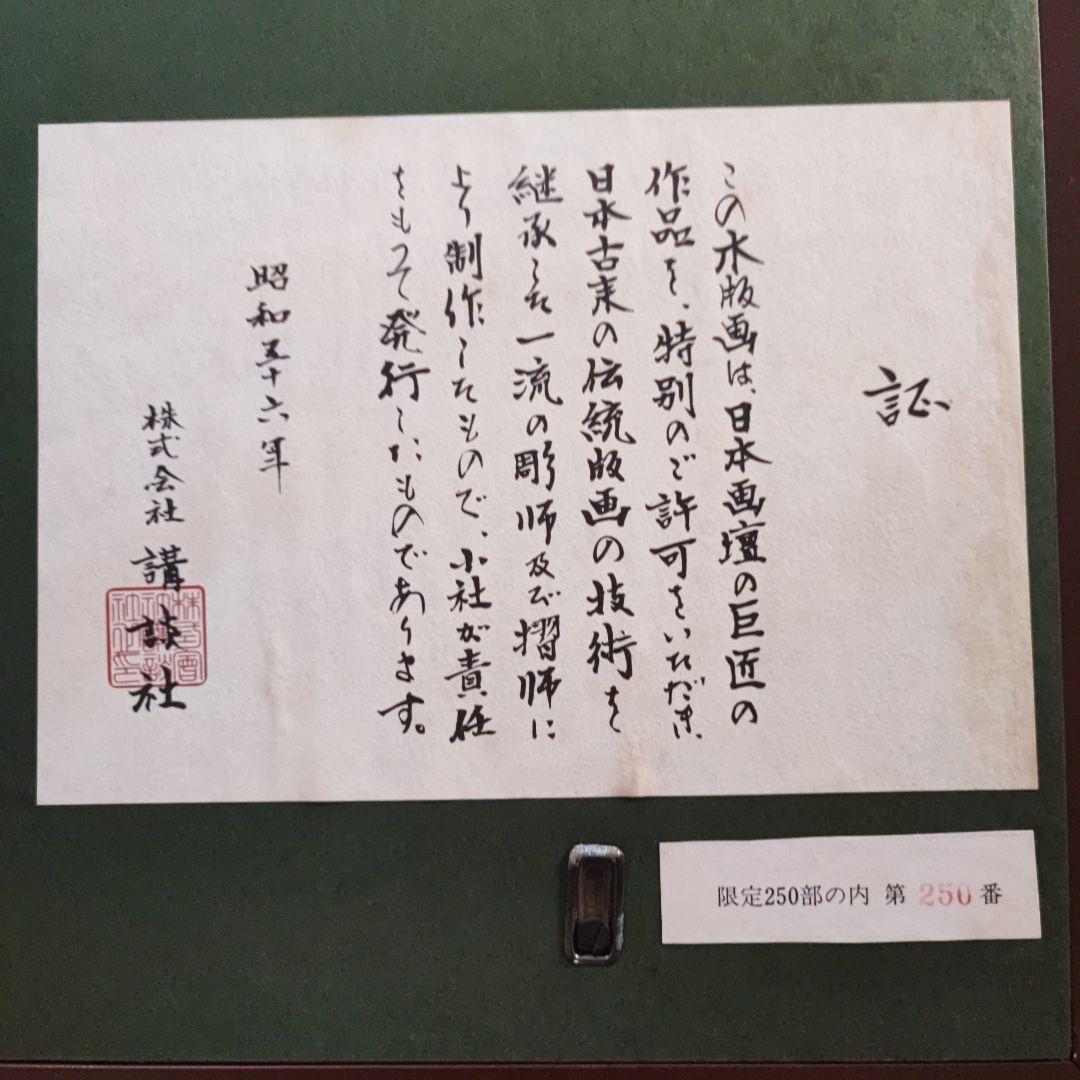 証
この木版画は、日本画壇の巨匠の
作品を、特別のご許可をいただき、
日本古来の伝統版画の技術を
継承した一流の彫師及び摺師に
より制作したもので、小社が責任
をもって発行したものであります。
昭和五十六年
株式会社 講談社
限定250部の内 第 250 番